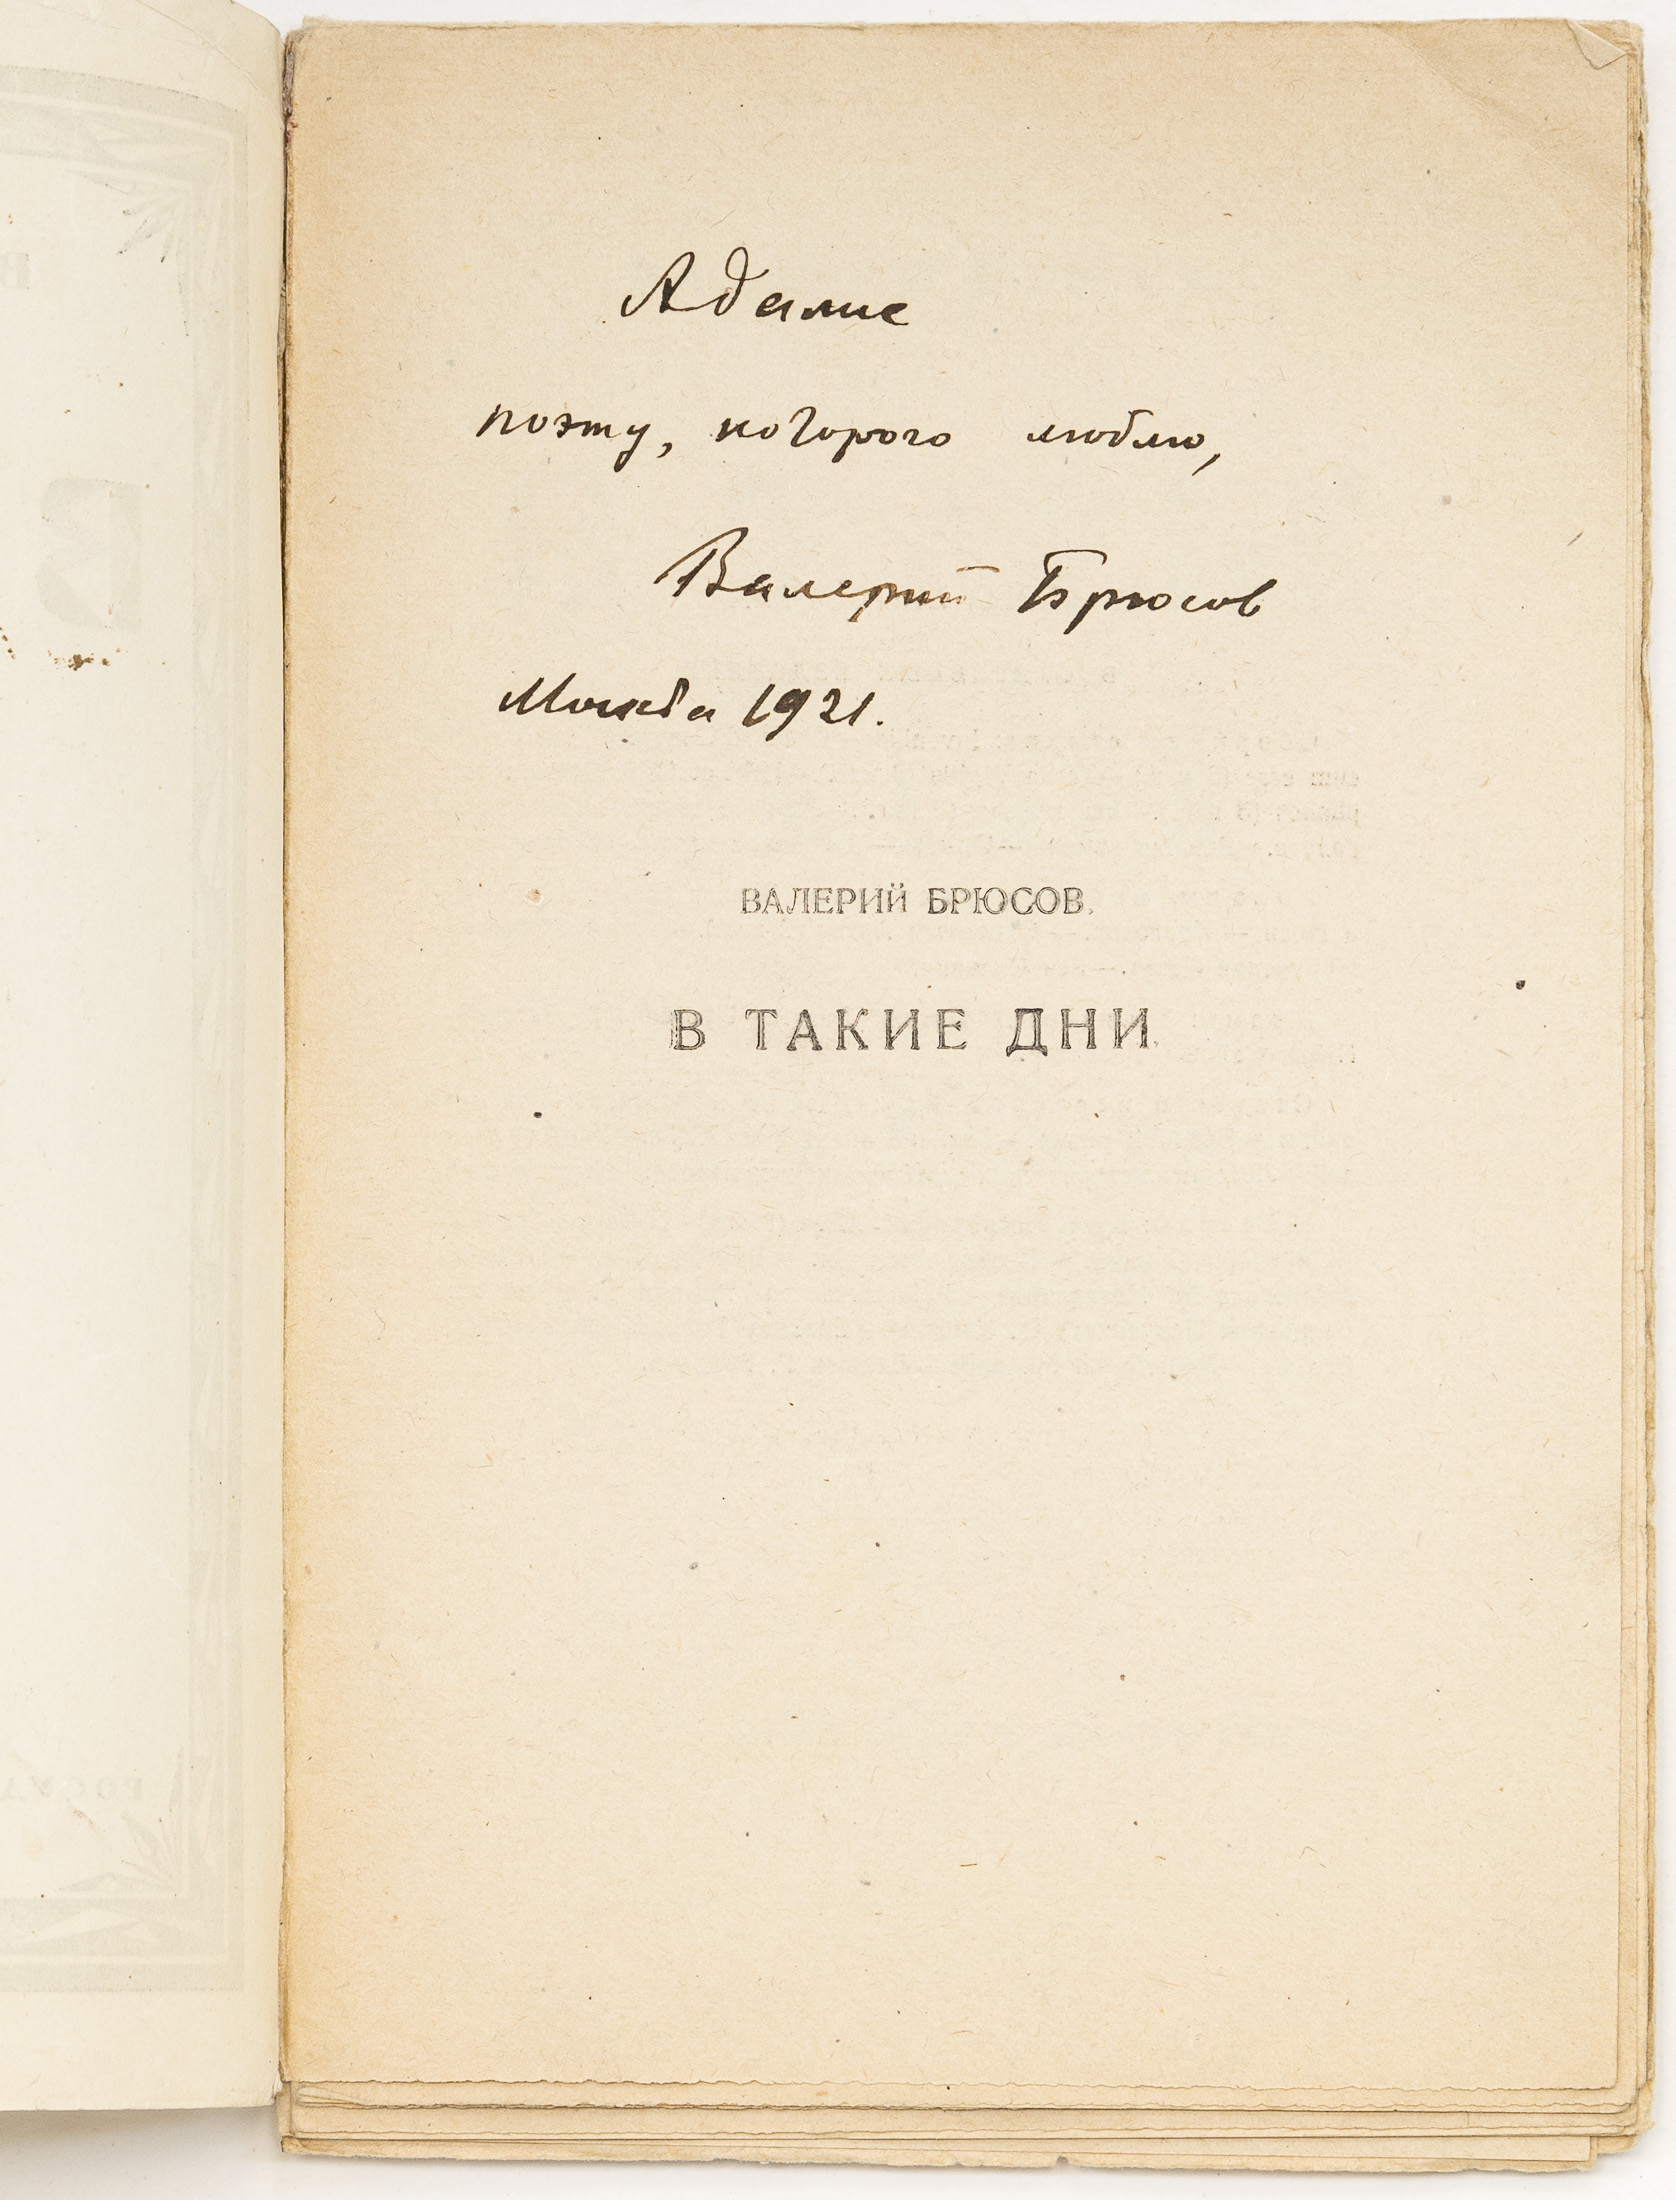 Адалис
поэту, которого люблю,
Валерий Брюсов
Москва 1921.
ВАЛЕРИЙ БРЮСОВ.
В ТАКИЕ ДНИ.